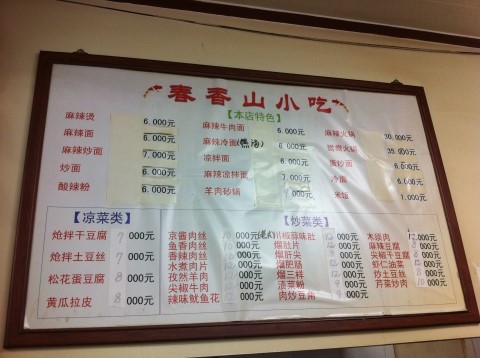 春香山小吃
【本店特色】
麻辣烫 6.000元
麻辣面 6.000元
麻辣炒面 7.000元
炒面 6.000元
酸辣粉 6.000元
麻辣牛肉面 6.000元
麻辣冷面 6.000元
凉拌面 6.000元
麻辣凉拌面 7.000元
羊肉砂锅 000元
麻辣火锅 30.000元
鸳鸯火锅 35.000元
蛋炒面 6.000元
冷面 6.000元
米饭 1.000元
【凉菜类】
炝拌干豆腐 7 000元
炝拌土豆丝 7 000元
松花蛋豆腐 8 000元
黄瓜拉皮 8 000元
【炒菜类】
京酱肉丝 10 000元
鱼香肉丝 000元
香辣肉丝 000元
水煮肉片 000元
孜然羊肉 000元
尖椒牛肉 000元
辣味鱿鱼花 000元
川椒蒜味肚 000元
爆肚片 000元
爆肝尖 000元
溜肥肠 000元
爆三样 000元
渍菜粉 000元
肉炒豆腐 000元
木须肉 000元
麻辣豆腐 8 000元
尖椒干豆腐 000元
虾仁油菜 000元
炒土豆丝 000元
芹菜炒肉 000元